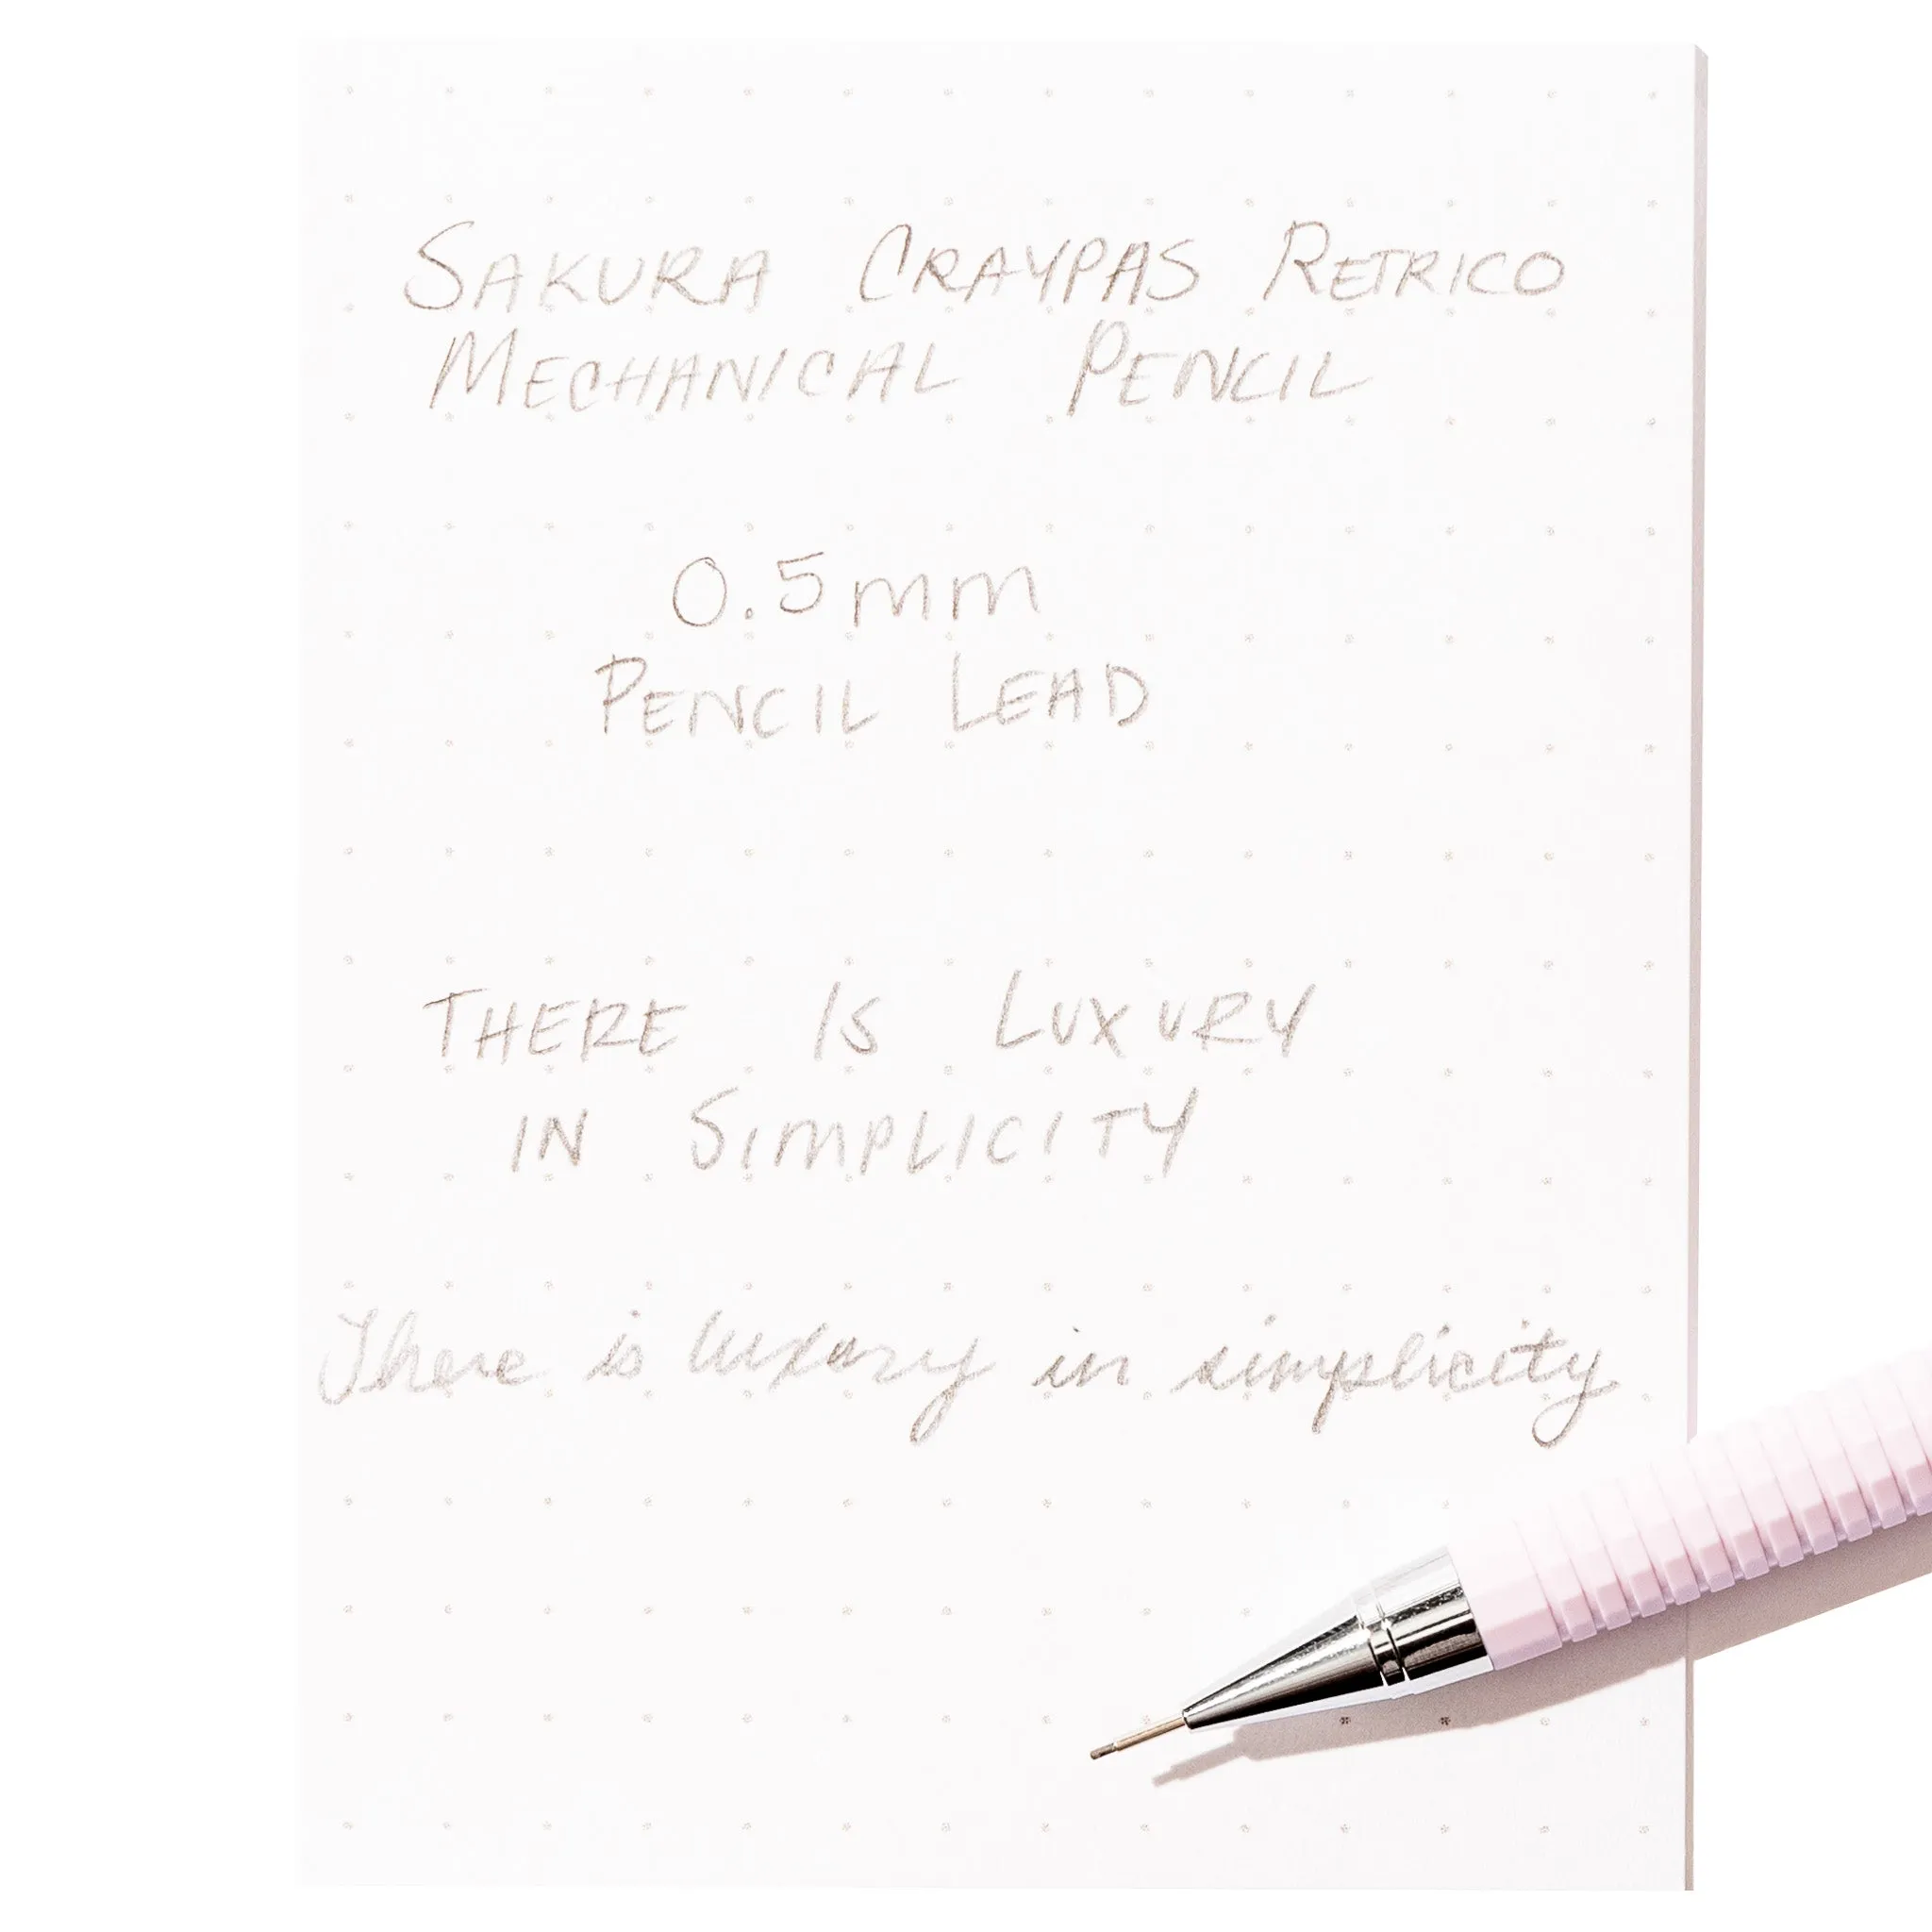 Sakura Craypas Retrico
Mechanical Pencil
0.5mm
Pencil Lead
There Is Luxury
in Simplicity
There is luxury in simplicity